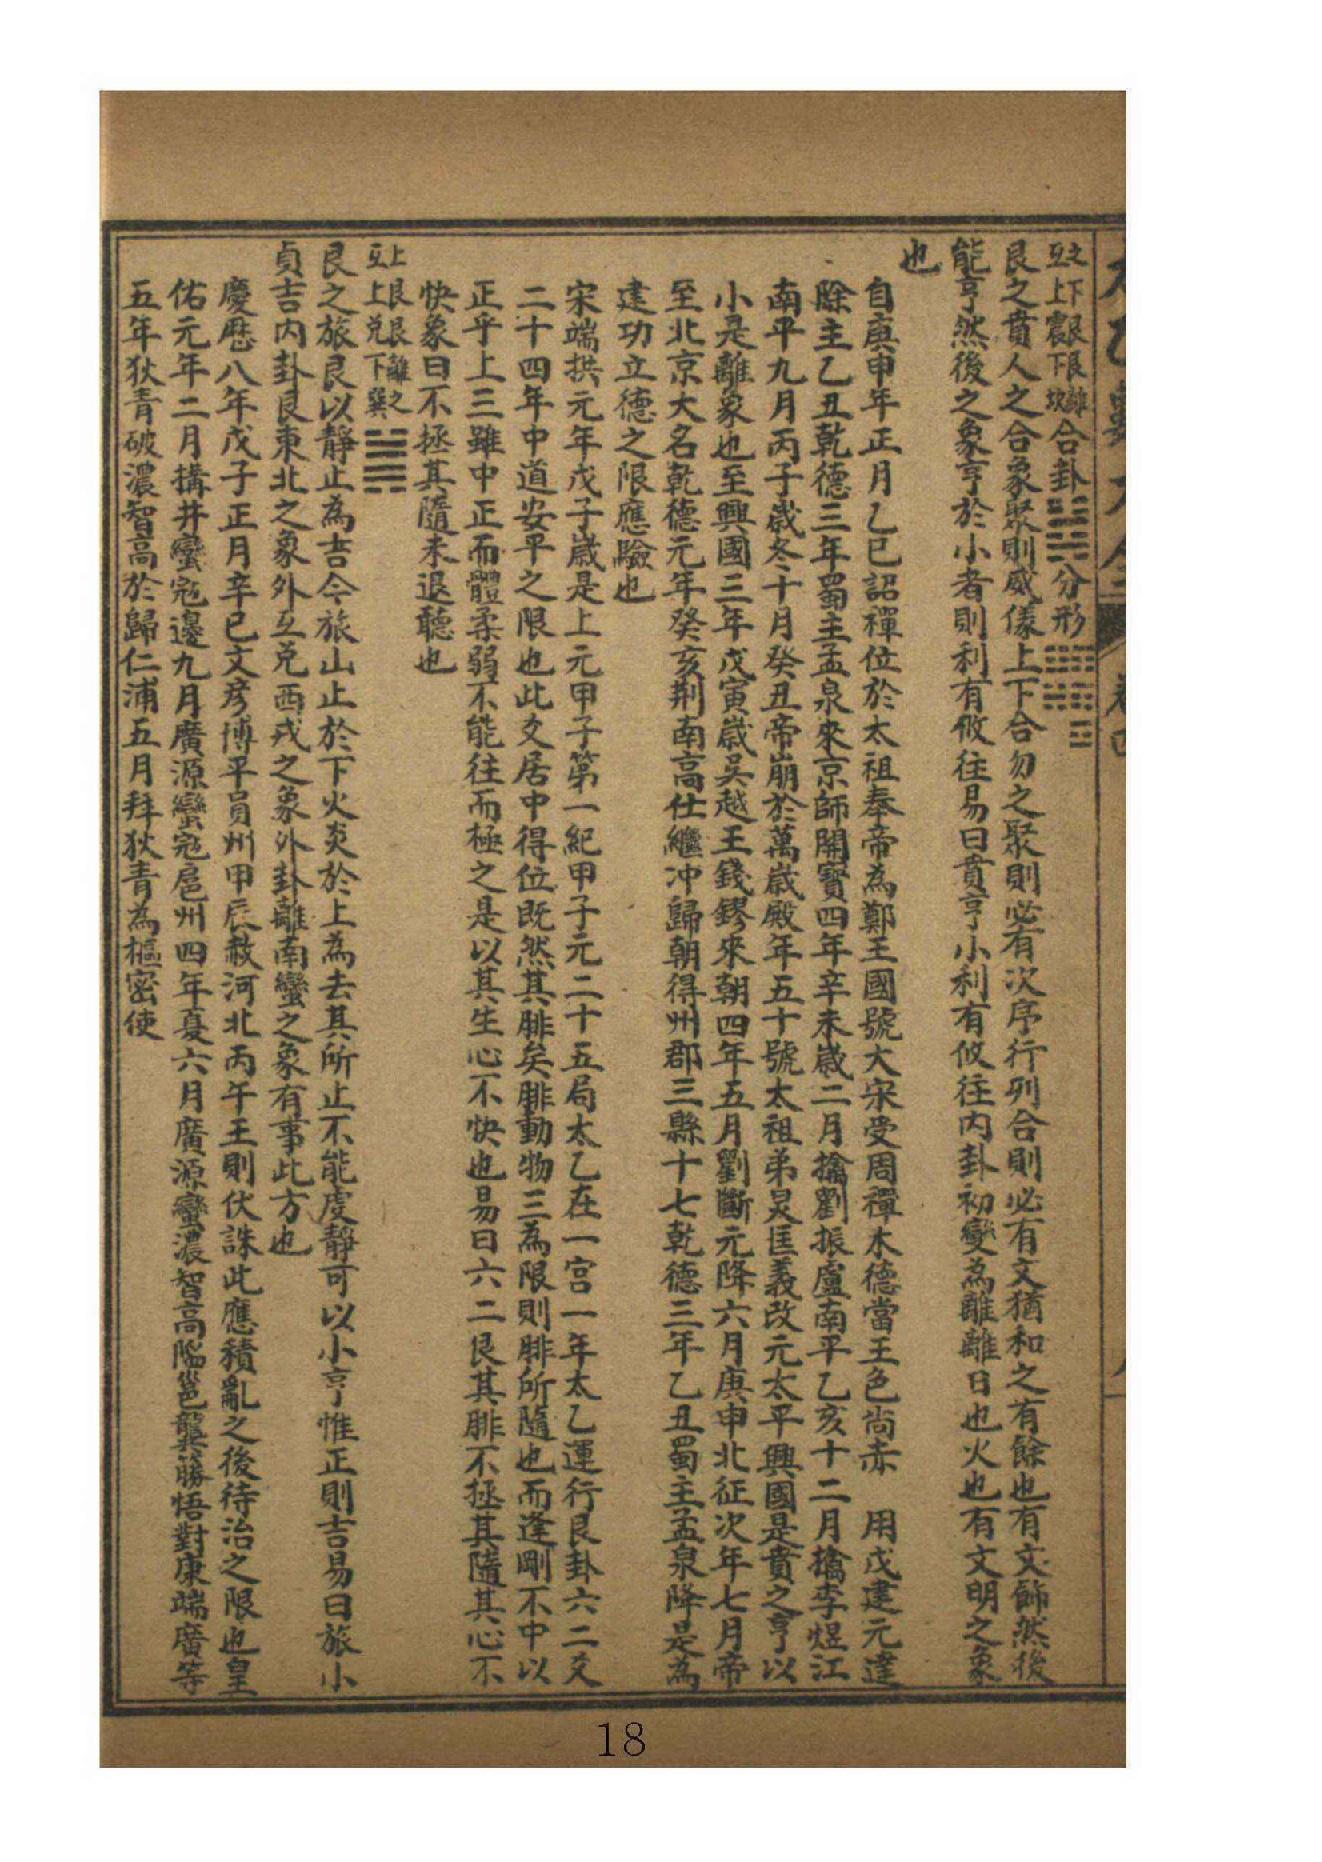 之下艮艮離
互上震下坎合卦分形
艮之賁人之合象聚則威儀上下合勿之聚則必有次序行列合則必有文猶和之有餘也有文飾然後
能亨然後之象亨於小者則利有攸往易曰賁亨小利有攸往內卦初變為離離日也火也有文明之象
也
自庚申年正月乙巳詔禪位於太祖奉帝為鄭王國號大宋受周禪木德當王色尚赤 用戊建元達
除主乙丑乾德三年蜀主孟泉來京師開寶四年辛未歲二月擒劉振盧南平乙亥十二月擒李煜江
南平九月丙子歲冬十月癸丑帝崩於萬歲殿年五十號太祖弟炅匡義改元太平興國是賁之亨以
小是離象也至興國三年戊寅歲吳越王錢鏐來朝四年五月劉斷元降六月庚申北征次年七月帝
至北京大名乾德元年癸亥荆南高仕繼冲歸朝得州郡三縣十七乾德三年乙丑蜀主孟泉降是為
建功立德之限應驗也
宋端拱元年戊子歲是上元甲子第一紀甲子元二十五局太乙在一宮一年太乙運行艮卦六二爻
二十四年中道安平之限也此爻居中得位既然其腓矣腓動物三為限則腓所隨也而逢剛不中以
正乎上三雖中正而體柔弱不能往而極之是以其生心不快也易曰六二艮其腓不拯其隨其心不
快象曰不拯其隨未退聽也
上艮艮離之
互上兌下巽
艮之旅艮以靜止為吉今旅山止於下火炎於上為去其所止不能虔靜可以小亨惟正則吉易曰旅小
貞吉內卦艮東北之象外互兌西戎之象外卦離南蠻之象有事此方也
慶曆八年戊子正月辛巳文彥博平員州甲辰赦河北丙午王則伏誅此應積亂之後待治之限也皇
佑元年二月搆井蠻寇邊九月廣源蠻寇邕州四年夏六月廣源蠻濃智高陷邕龔籐悟對康端廣等
五年狄青破濃智高於歸仁浦五月拜狄青為樞密使
卷四
18